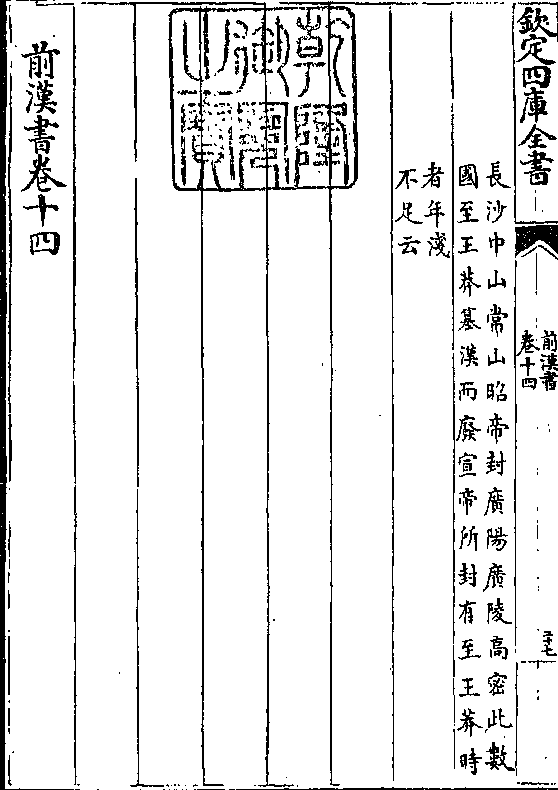 欽定四庫全書
前漢書
卷十四
三七
長沙中山常山昭帝封廣陽廣陵高密此數
國至王莽墓漢而廢宣帝所封有至王莽時
者年淺
不足云
乾隆
御覽
之寶
前漢書卷十四